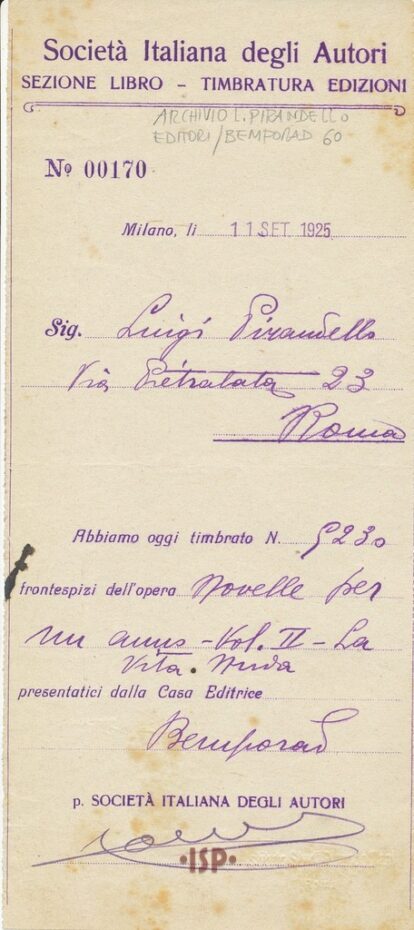 Società Italiana degli Autori
SEZIONE LIBRO – TIMBRATURA EDIZIONI
ARCHIVIO L. PIRANDELLO
EDITORI/BEMPORAD 60
Nº 00170
Milano, lì 11 SET. 1925
Sig. Luigi Pirandello
Via Pietralata 23
Roma
Abbiamo oggi timbrato N. 5230
frontespizi dell'opera Novelle per
un anno - Vol. II - La
Vita Nuda
presentatici dalla Casa Editrice
Bemporad
p. SOCIETÀ ITALIANA DEGLI AUTORI
•ISP•